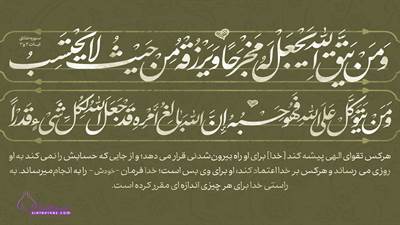 سوره طلاق
آیات ۲ و ۳
وَمَن يَتَّقِ اللهَ يَجْعَل لَهُ مَخْرَجًا وَيَرْزُقْهُ مِنْ حَيْثُ لَا يَحْتَسِبُ
وَمَن يَتَوَكَّلْ عَلَى اللهِ فَهُوَ حَسْبُهُ إِنَّ اللهَ بَالِغُ أَمْرِهِ قَدْ جَعَلَ اللهُ لِكُلِّ شَيْءٍ قَدْرًا
هرکس تقوای الهی پیشه کند [خدا] برای او راه بیرون‌شدنی قرار می دهد؛ و از جایی که حسابش را نمی کند به او
روزی می رساند و هرکس بر خدا اعتماد کند، او برای وی بس است؛ خدا فرمان -خودش- را به انجام می‌رساند. به
راستی خدا برای هر چیزی اندازه ای مقرر کرده است.